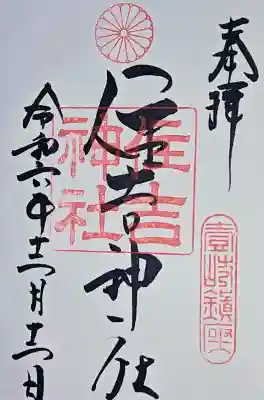 奉拝
住吉神社
令和六年十二月十二日
住吉
神社
壹岐鎮座